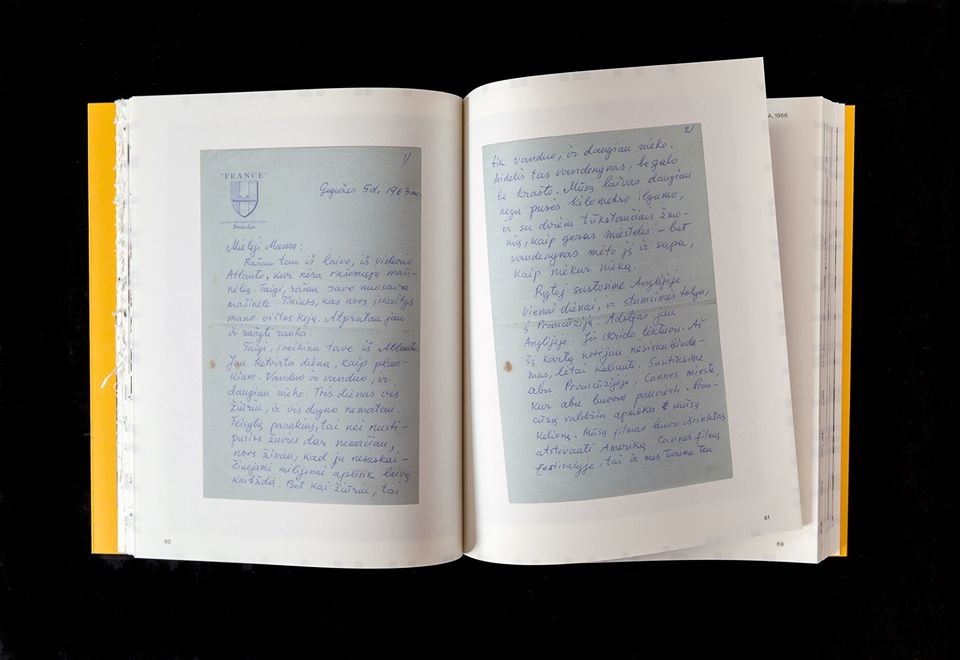 1/
"FRANCE"
Gegužės 5d, 1963 m.
Mieloji Mama:
Rašau tau iš laivo, iš vidurio
Atlanto, kur nėra rašomųjų maši-
nėlių. Taigi, rašau savo nuosava
mašinėle. Tikiuos, kas nors iškaitys
mano vištos koją. Atpratau jau
ir rašyti ranka.
Taigi, sveikinu tave iš Atlanto.
Jau ketvirta diena, kaip plau-
kiam. Vanduo ir vanduo, ir
daugiau nieko. Tris dienas vis
žiūriu, ir vis dugno nematau.
Teisybę pasakius, tai nei pusti-
pusės žuvies dar nemačiau,
nors žinau, kad jų nesuskai-
čiuojami milijonai aplink laivą
knibžda. Bet kai žiūriu, tai
60
2/
tik vanduo, ir daugiau nieko.
Didelis tas vandenynas, be galo
be krašto. Mūsų laivas daugiau
negu pusės kilometro ilgumo,
ir su dviem tūkstančiais žmo-
nių, kaip geras miestelis – bet
vandenynas mėto jį ir supa,
kaip niekur nieką.
Rytoj sustosime Anglijoje
vienai dienai, ir stumsimės toliau,
į Prancūziją. Adolfas jau
Anglijoje. Jis skrido lėktuvu. Aš
šį kartą norėjau nesiskubinda-
mas, lėtai keliauti. Susitiksime
abu Prancūzijoje, Cannes mieste,
kur abu buvom pakviesti. Pran-
cūzų valdžia apmoka mūsų
kelionę. Mūsų filmas buvo išrinktas
atstovauti Ameriką Cannes filmų
festivalyje, tai ir mes turime ten
61
A, 1966
69